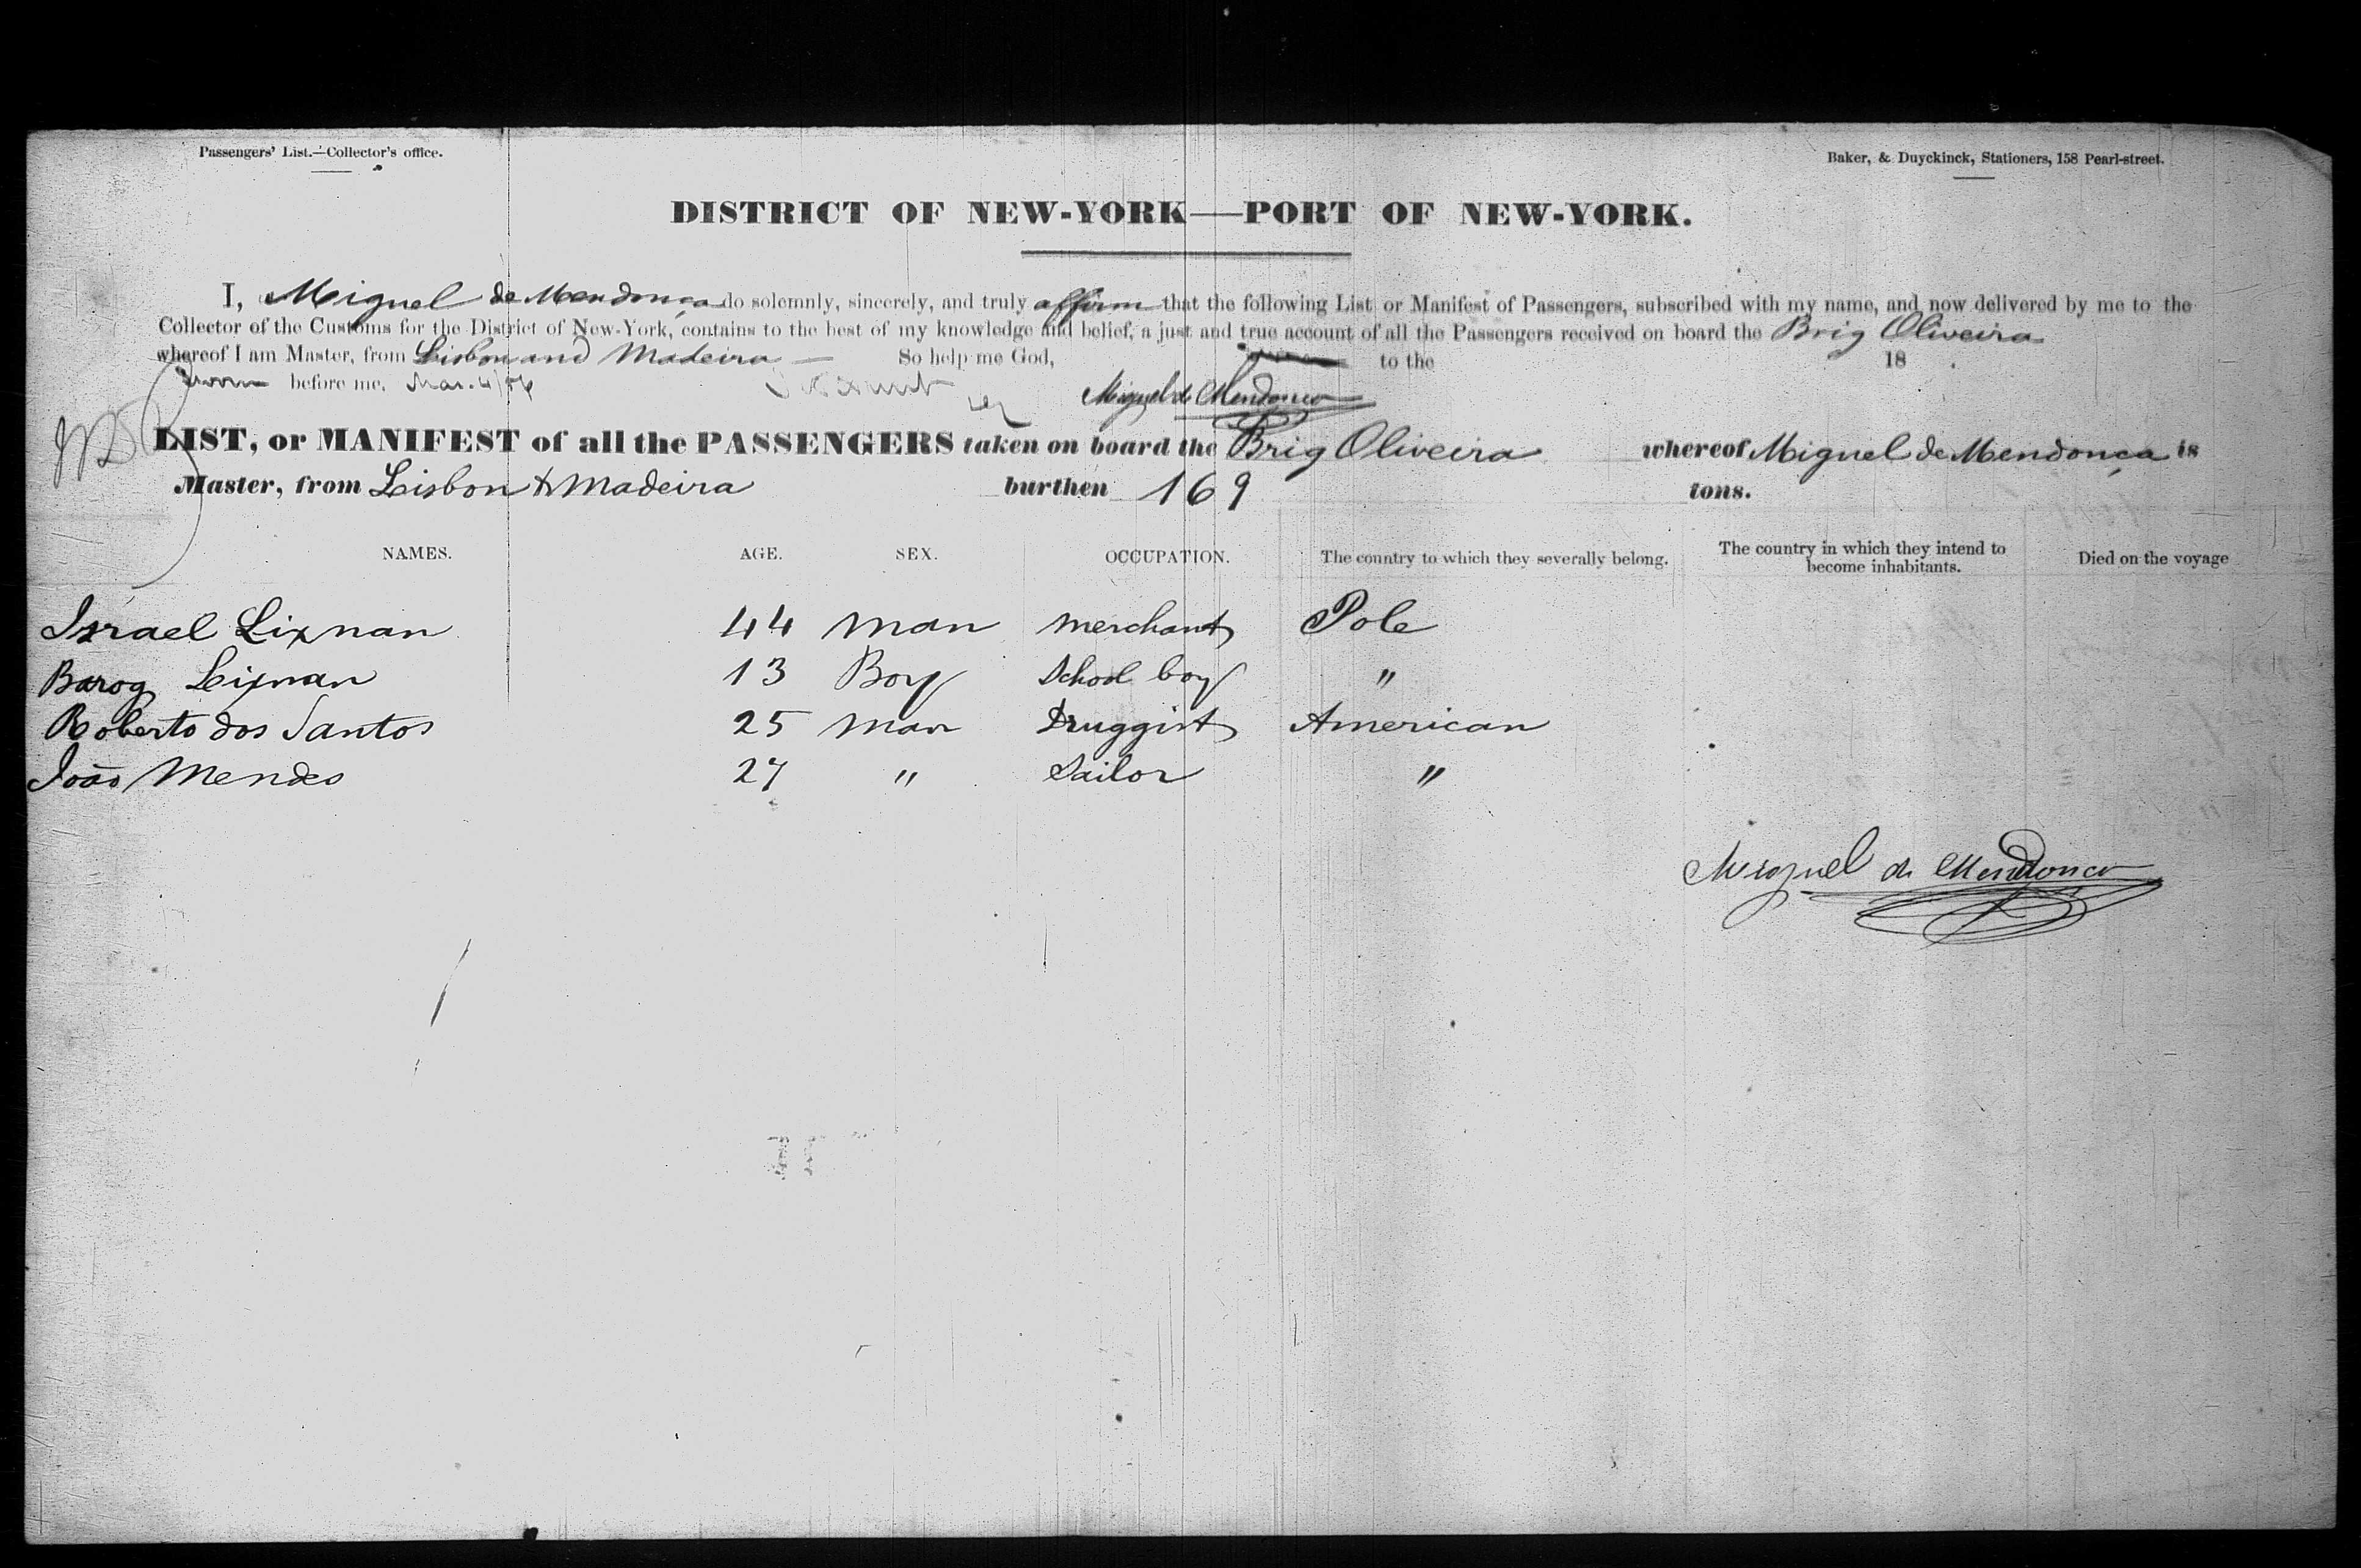 Passengers' List.—Collector's office.
Baker, & Duyckinck, Stationers, 158 Pearl-street.
DISTRICT OF NEW-YORK—PORT OF NEW-YORK.
I, Miguel de Mendonça do solemnly, sincerely, and truly affirm that the following List or Manifest of Passengers, subscribed with my name, and now delivered by me to the
Collector of the Customs for the District of New-York, contains to the best of my knowledge and belief, a just and true account of all the Passengers received on board the Brig Oliveira
whereof I am Master, from Lisbon and Madeira — So help me God, to the 18
Sworn before me, Mar. 4/56
Miguel de Mendonca
LIST, or MANIFEST of all the PASSENGERS taken on board the Brig Oliveira whereof Miguel de Mendonça is
Master, from Lisbon & Madeira burthen 169 tons.
NAMES. AGE. SEX. OCCUPATION. The country to which they severally belong. The country in which they intend to become inhabitants. Died on the voyage
Israel Lixnan 44 man merchant Pole
Barog Lixnan 13 Boy School boy "
Roberto dos Santos 25 man Druggist American
João Mendes 27 " Sailor "
Miguel de Mendonca